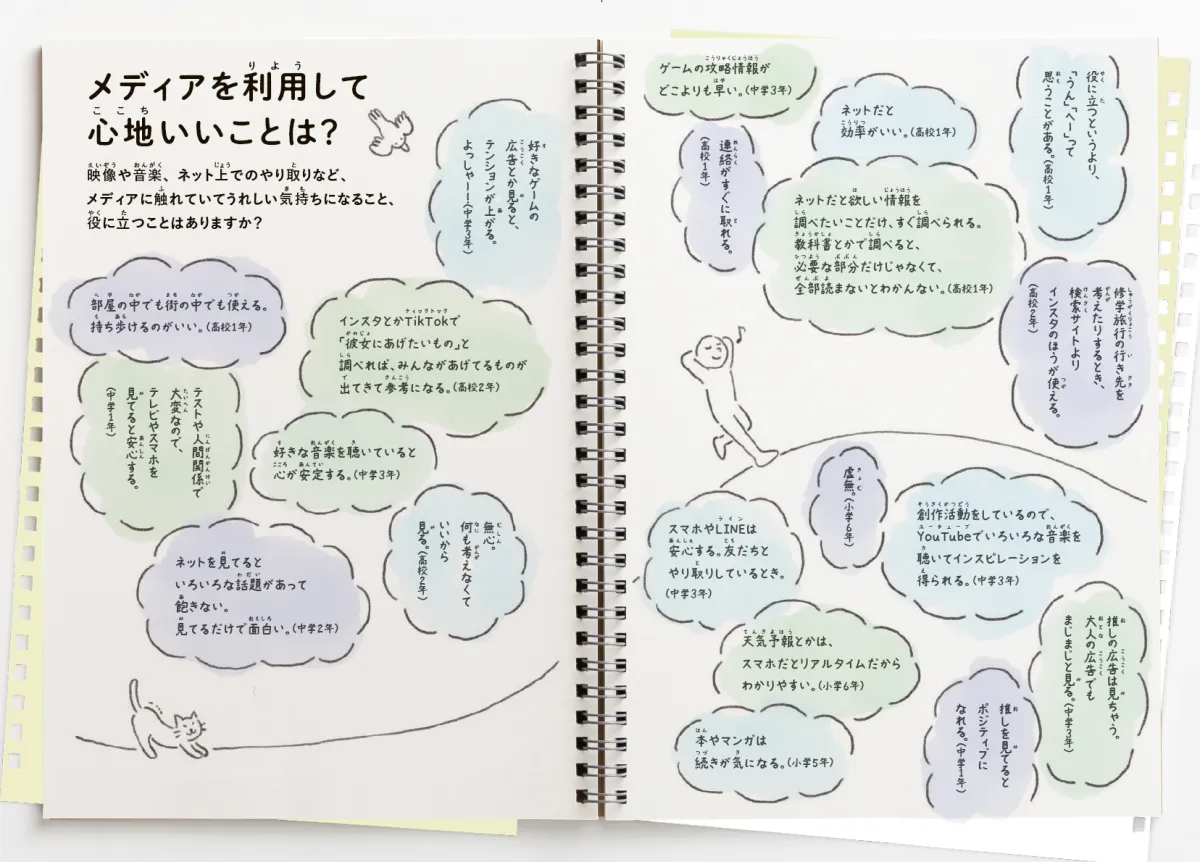 メディアを利用して
心地いいことは？
映像や音楽、ネット上でのやり取りなど、
メディアに触れていてうれしい気持ちになること、
役に立つことはありますか？
好きなゲームの
広告とか見ると、
テンションが上がる。
よっしゃーー（中学3年）
部屋の中でも街の中でも使える。
持ち歩けるのがいい。（高校1年）
インスタとかTikTokで
「彼女にあげたいもの」と
調べれば、みんながあげてるものが
出てきて参考になる。（高校2年）
テストや人間関係で
大変なので、
テレビやスマホを
見てると安心する。
（中学1年）
好きな音楽を聴いていると
心が安定する。（中学3年）
無心。
何も考えなくて
いいから
見る。（高校2年）
ネットを見てると
いろいろな話題があって
飽きない。
見てるだけで面白い。（中学2年）
ゲームの攻略情報が
どこよりも早い。（中学3年）
ネットだと
効率がいい。（高校1年）
役に立つというより、
「うん」「へー」って
思うことがある。（高校1年）
連絡がすぐに取れる。
（高校1年）
ネットだと欲しい情報を
調べたいことだけ、すぐ調べられる。
教科書とかで調べると、
必要な部分だけじゃなくて、
全部読まないとわかんない。（高校1年）
修学旅行の行き先を
考えたりするとき、
検索サイトより
インスタのほうが使える。
（高校2年）
虚無。（小学6年）
スマホやLINEは
安心する。友だちと
やり取りしているとき。
（中学3年）
創作活動をしているので、
YouTubeでいろいろな音楽を
聴いてインスピレーションを
得られる。（中学3年）
天気予報とかは、
スマホだとリアルタイムだから
わかりやすい。（小学6年）
推しの広告は見ちゃう。
大人の広告でも
まじまじと見る。（中学3年）
推しを見てると
ポジティブに
なれる。（中学1年）
本やマンガは
続きが気になる。（小学5年）